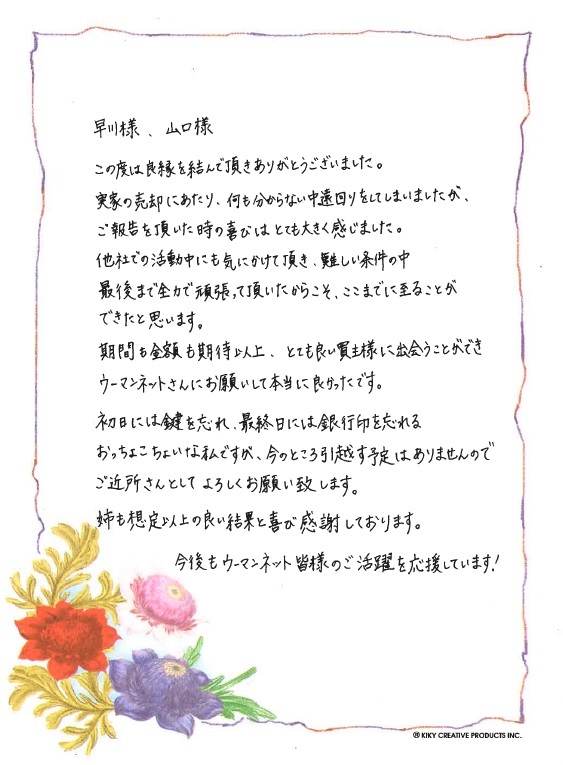 早川様、山口様
この度は良縁を結んで頂きありがとうございました。
実家の売却にあたり、何も分からない中遠回りをしてしまいましたが、
ご報告を頂いた時の喜びはとても大きく感じました。
他社での活動中にも気にかけて頂き、難しい条件の中
最後まで全力で頑張って頂いたからこそ、ここまでに至ることが
できたと思います。
期間も金額も期待以上、とても良い買主様に出会うことができ
ウーマンネットさんにお願いして本当に良かったです。
初日には鍵を忘れ、最終日には銀行印を忘れる
おっちょこちょいな私ですが、今のところ引越す予定はありませんので
ご近所さんとしてよろしくお願い致します。
姉も想定以上の良い結果と喜び感謝しております。
今後もウーマンネット皆様のご活躍を応援しています!
® KIKY CREATIVE PRODUCTS INC.